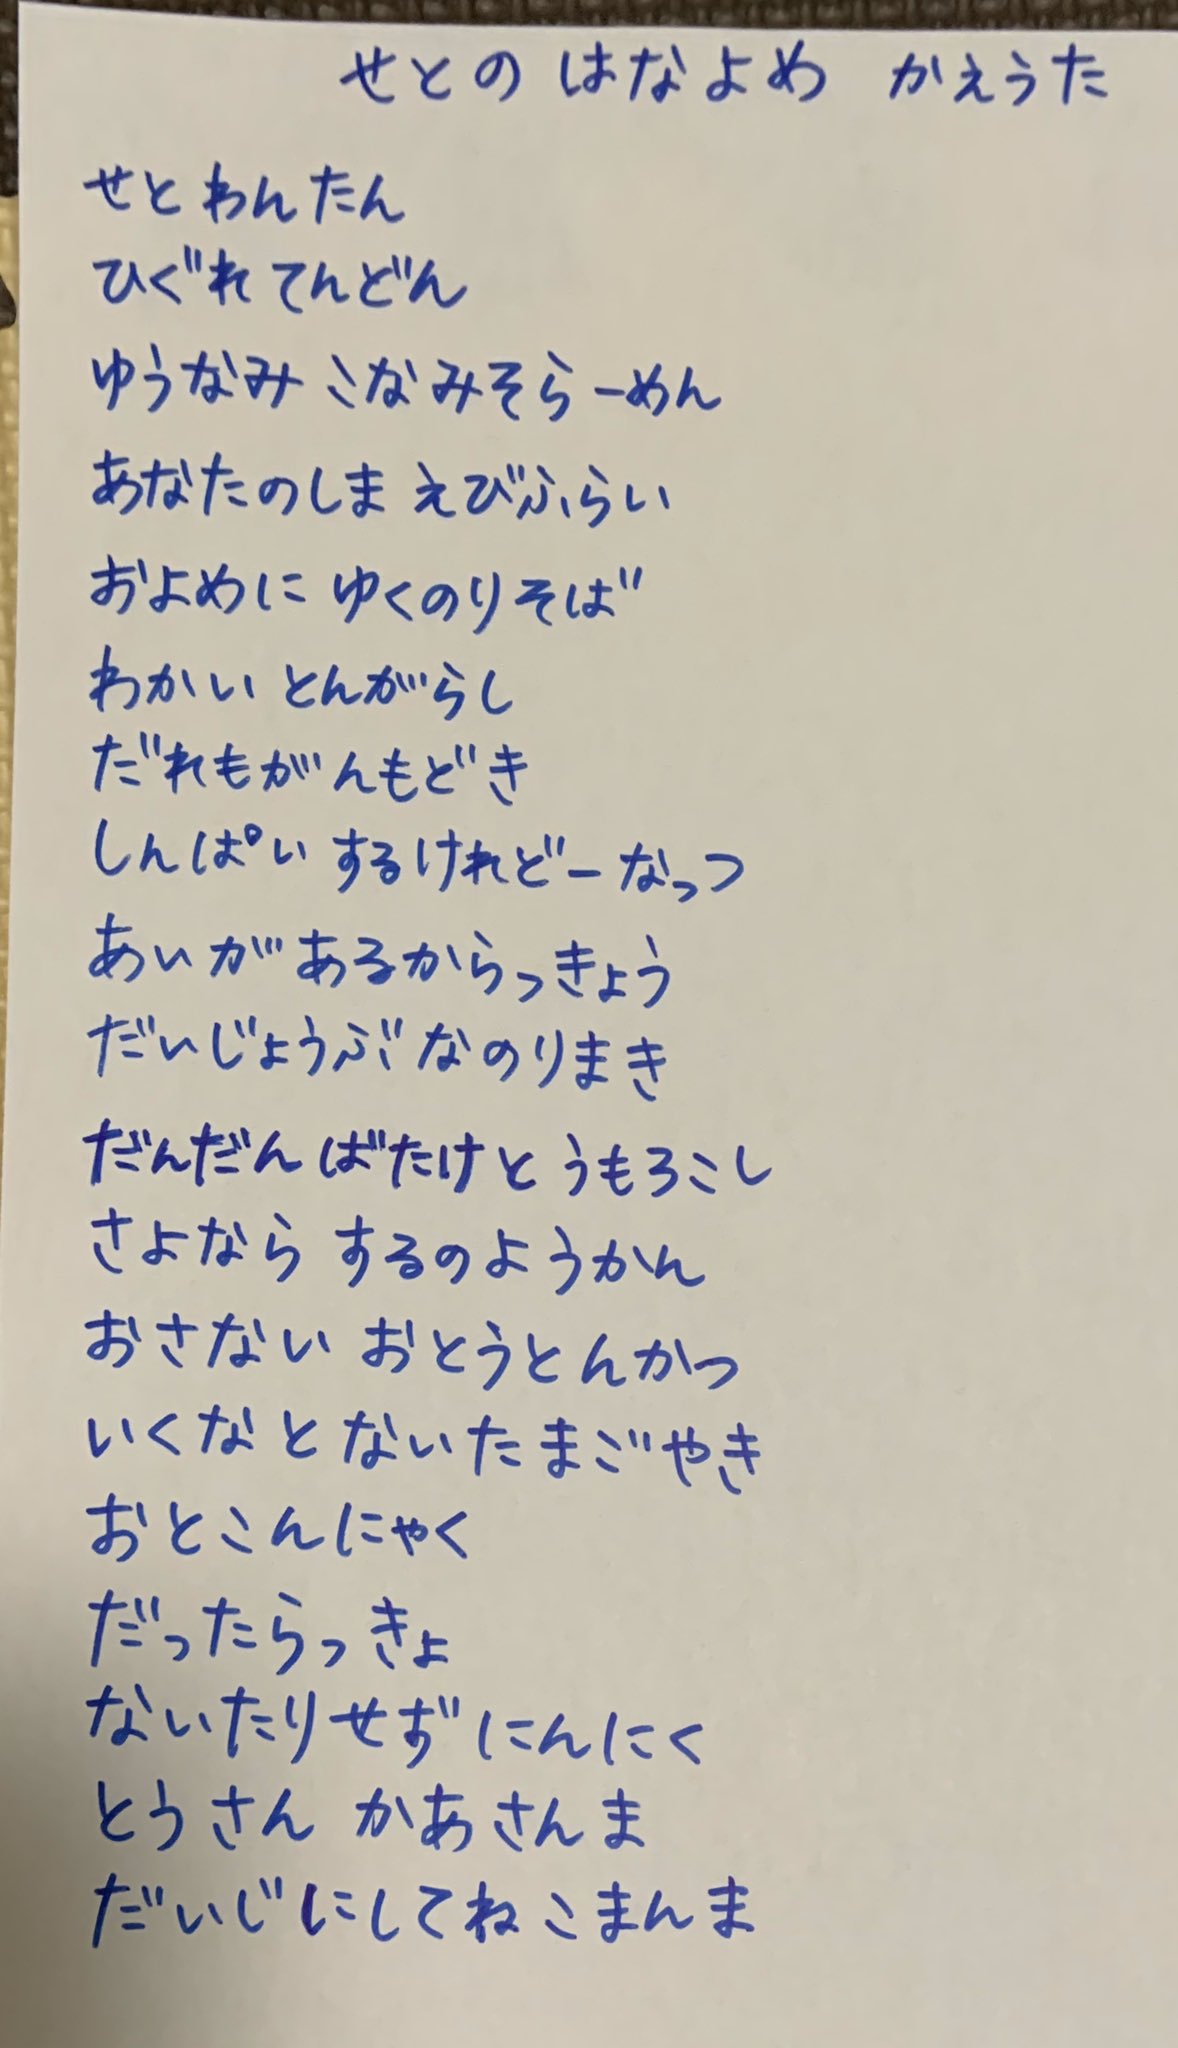 せとの はなよめ かえうた
せと わんたん
ひぐれ てんどん
ゆうなみ こなみそらーめん
あなたのしま えびふらい
およめに ゆくのりそば
わかい とんがらし
だれもがんもどき
しんぱい するけれどーなっつ
あいが あるからっきょう
だいじょうぶ なのりまき
だんだん ばたけと うもろこし
さよなら するのようかん
おさない おとうとんかつ
いくなと ないたまごやき
おとこんにゃく
だったらっきょ
ないたりせず にんにく
とうさん かあさんま
だいじにしてねこまんま